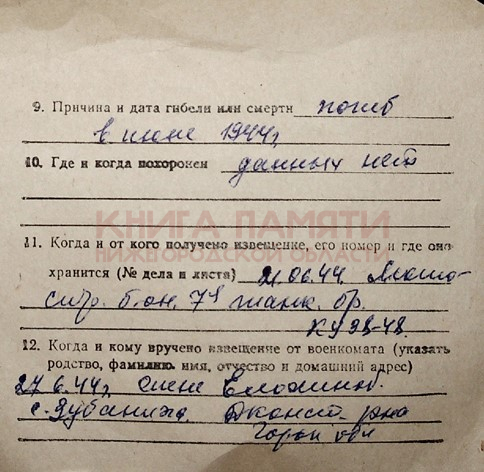 9. Причина и дата гибели или смерти погиб
в июне 1944г,
10. Где и когда похоронен данных нет
КНИГА ПАМЯТИ
НИЖЕГОРОДСКОЙ ОБЛАСТИ
11. Когда и от кого получено извещение, его номер и где оно
хранится (№ дела и листа) 21.06.44. Мото-
стр. б-он, 74 танк. бр.
12. Когда и кому вручено извещение от военкомата (указать
родство, фамилию, имя, отчество и домашний адрес)
27.6.44г,
с. Зубаниха. Дконст. р-на
Горьк обл